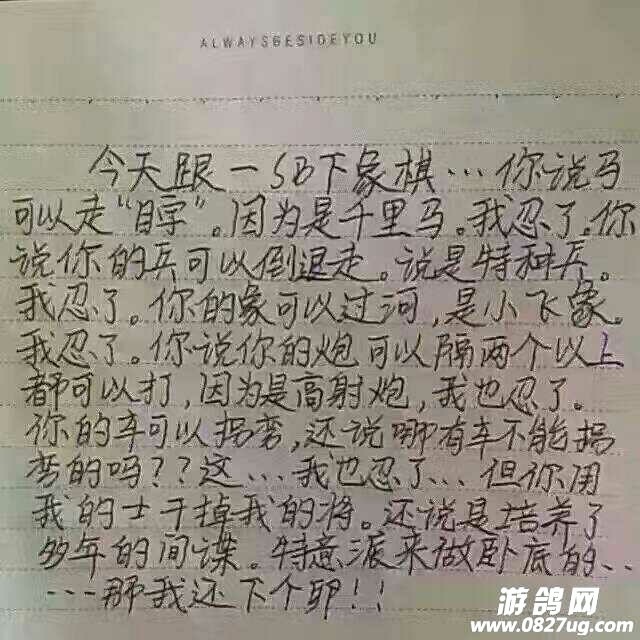 ALWAYSBESIDEYOU
今天跟一SB下象棋…你说马
可以走“目字”。因为是千里马。我忍了。你
说你的兵可以倒退走。说是特种兵。
我忍了。你的象可以过河，是小飞象。
我忍了。你说你的炮可以隔两个以上
都可以打，因为是高射炮，我也忍了。
你的车可以拐弯，还说哪有车不能拐
弯的吗？？这…我也忍了…但你用
我的士干掉我的将。还说是培养了
多年的间谍。特意派来做卧底的..
…那我还下个卵！！
游鸽网
www.0827ug.com